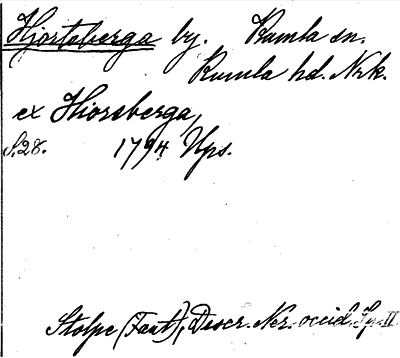 Hjortsberga by. Kumla sn.
Kumla hd. Nrk.
ex Hiorsberga,
S.28. 1794 Ups.
Stolpe (Fant), Descr. Ner. occid. Sp. II